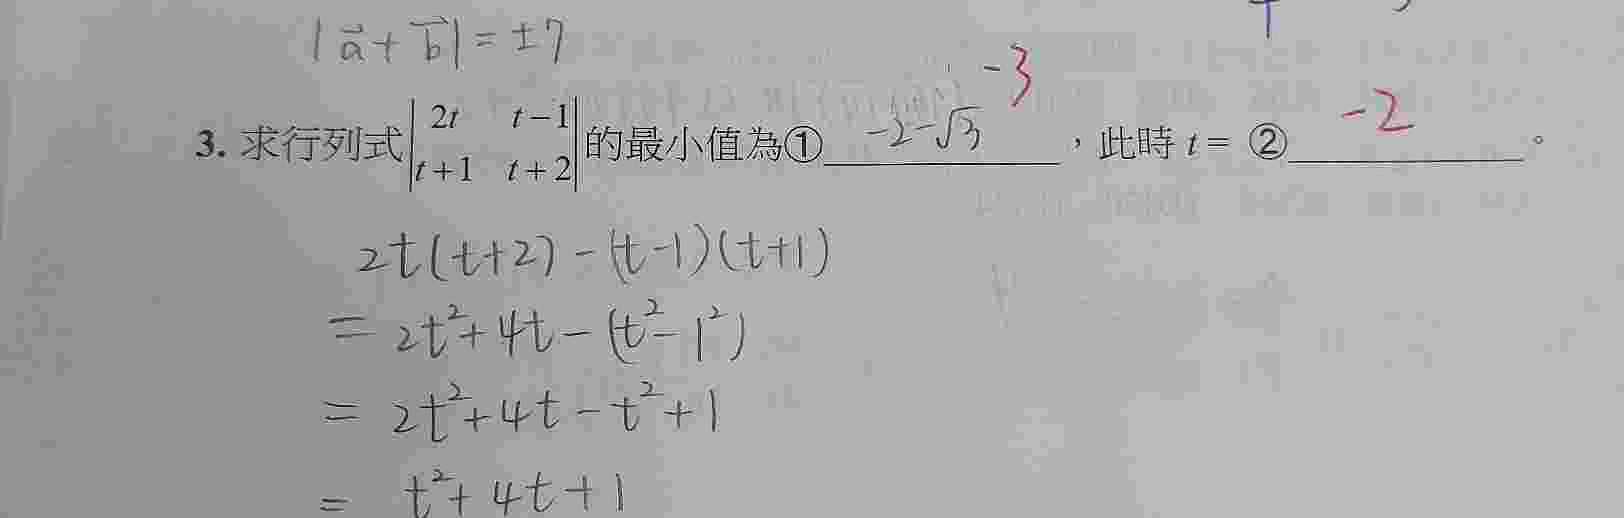 |a⃗+b⃗|=±7
-3
-2
3. 求行列式|2t t-1|的最小值為① -2-√3 ,此時 t= ② 。
|t+1 t+2|
2t(t+2)-(t-1)(t+1)
= 2t²+4t-(t²-1²)
= 2t²+4t-t²+1
= t²+4t+1